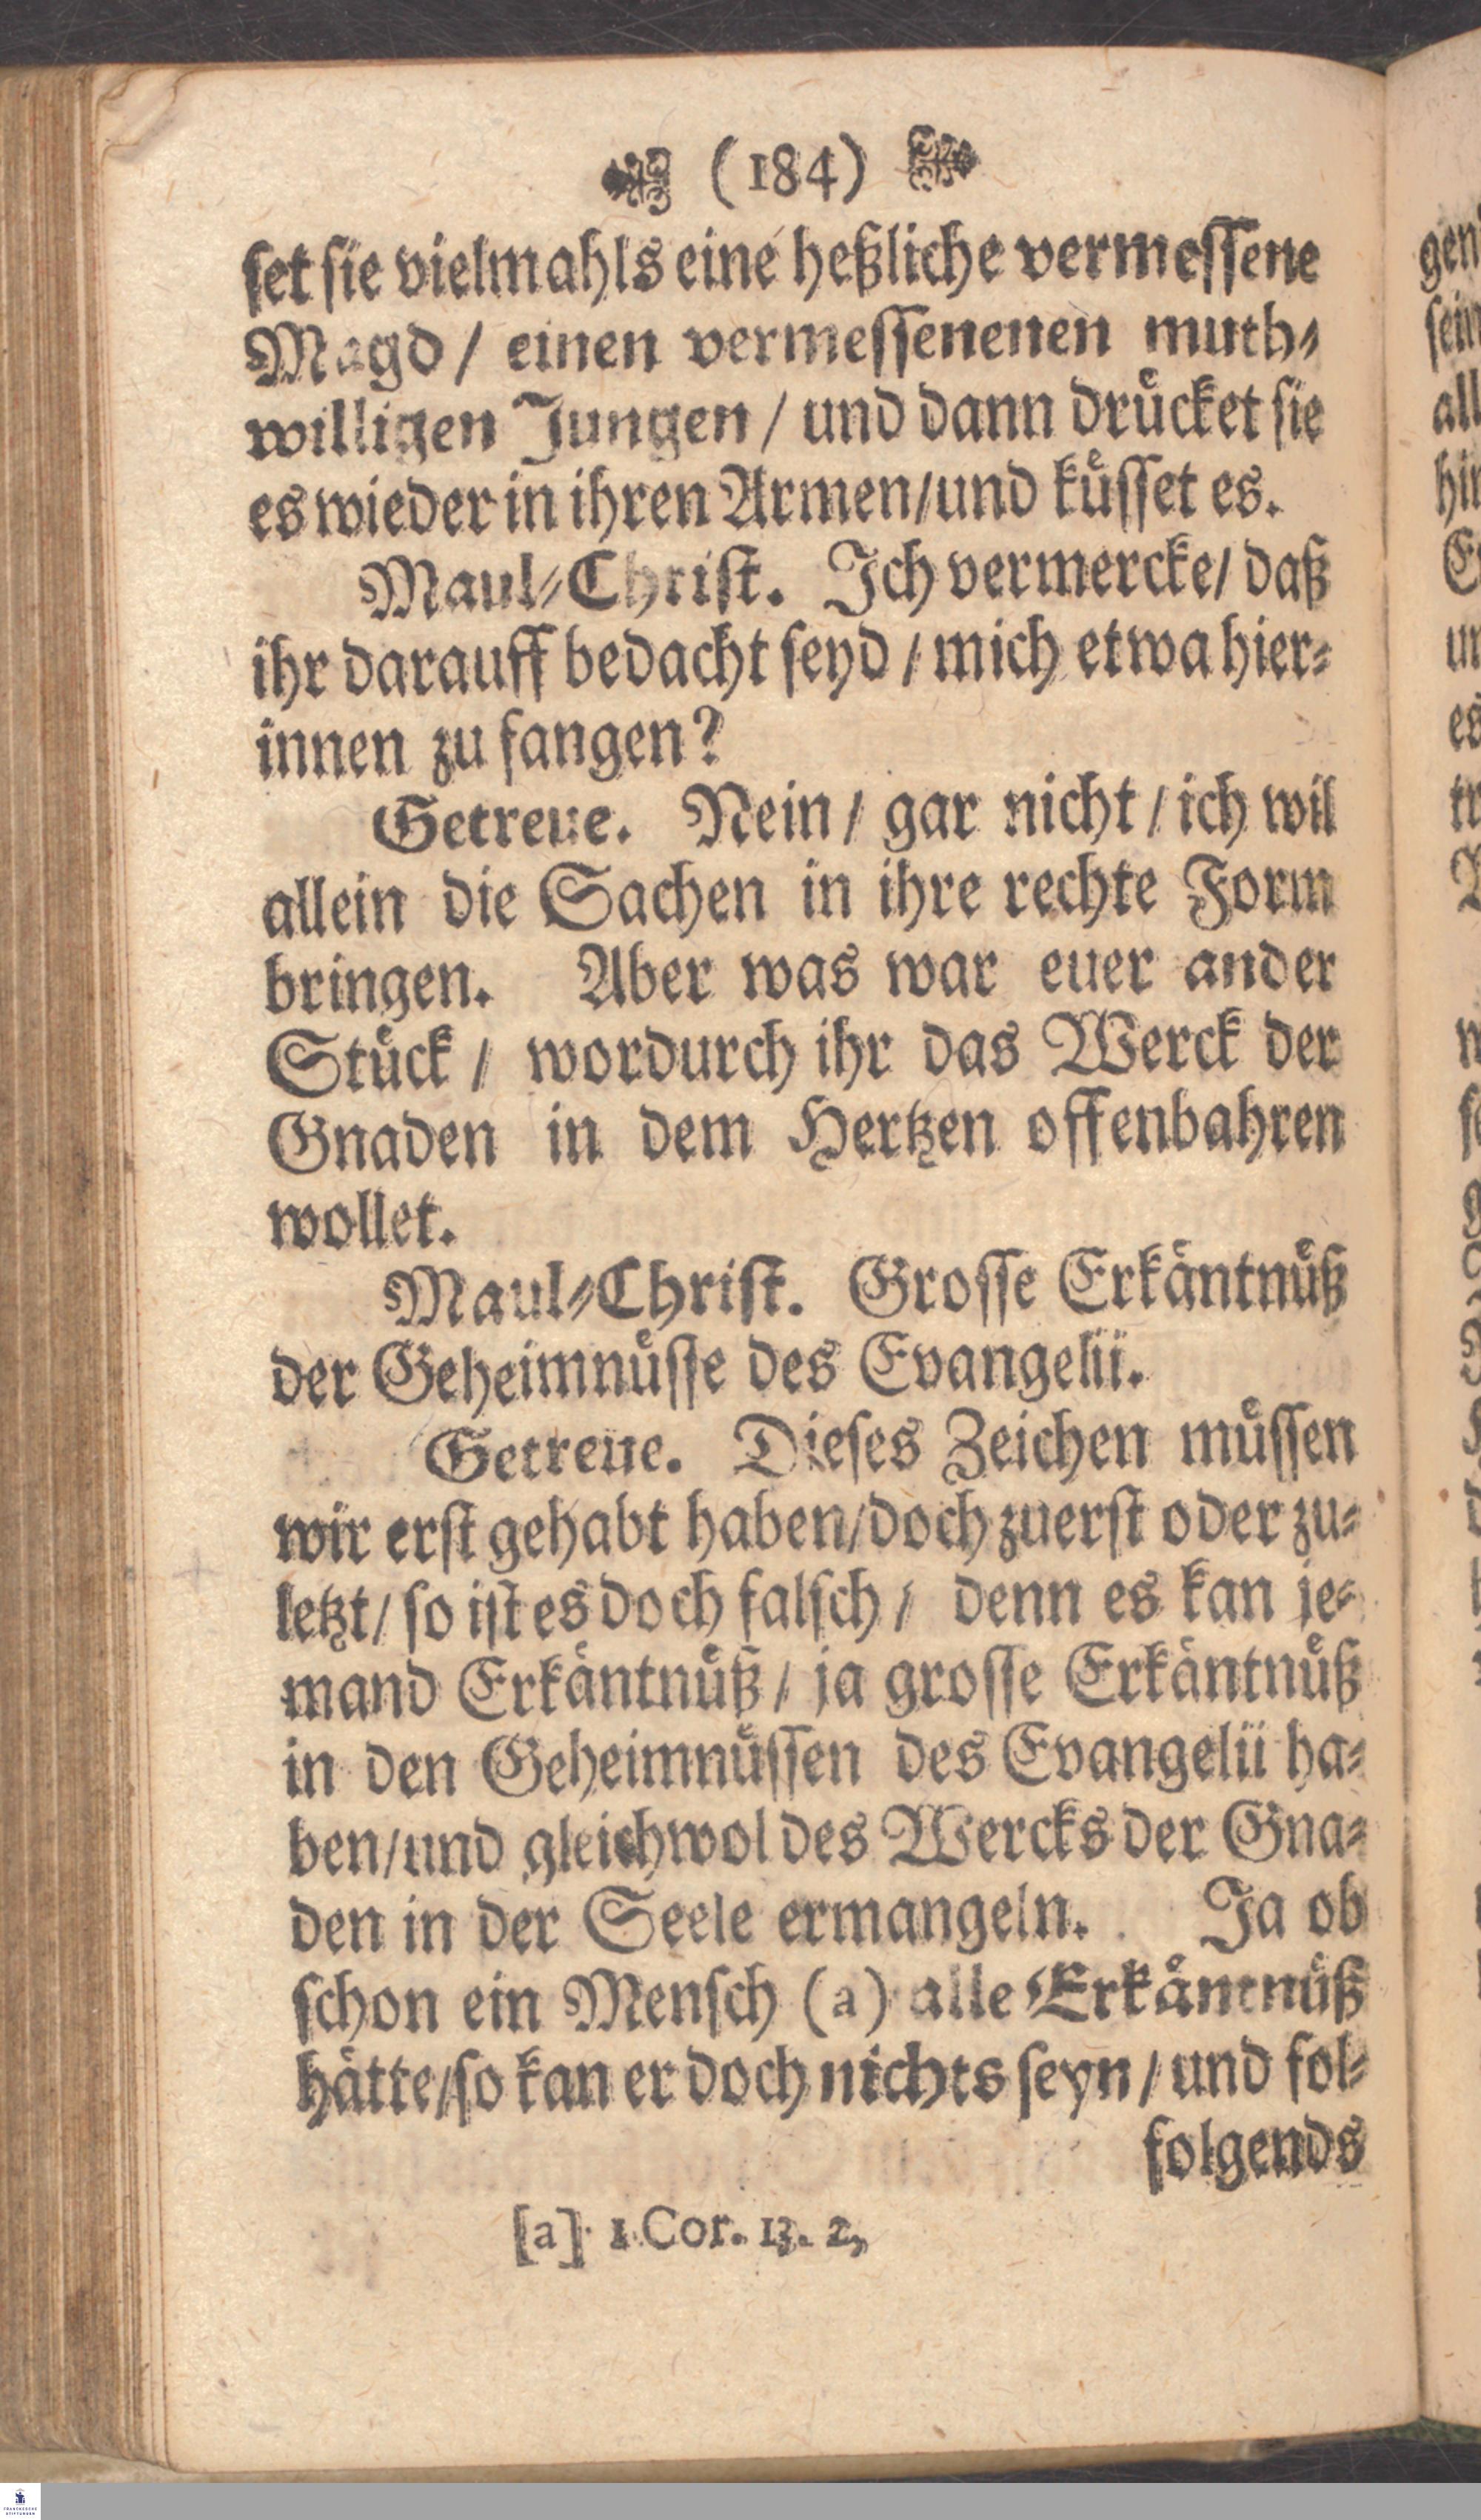 (184)
ſet ſie vielmahls eine heßliche vermeſſene
Magd / einen vermeſſenenen muth⸗
willigen Jungen / und dann druͤcket ſie
es wieder in ihren Armen/und kuͤſſet es.
Maul⸗Chriſt. Ich vermercke/ daß
ihr darauff bedacht ſeyd / mich etwa hier⸗
innen zu fangen?
Getreue. Nein / gar nicht / ich wil
allein die Sachen in ihre rechte Form
bringen. Aber was war euer ander
Stuͤck / wordurch ihr das Werck der
Gnaden in dem Hertzen offenbahren
wollet.
Maul⸗Chriſt. Groſſe Erkaͤntnuͤß
der Geheimnuͤſſe des Evangelii.
Getreue. Dieſes Zeichen muͤſſen
wir erſt gehabt haben/doch zuerſt oder zu⸗
letzt/ ſo iſt es doch falſch / denn es kan je⸗
mand Erkaͤntnuͤß / ja groſſe Erkaͤntnuͤß
in den Geheimnuͤſſen des Evangelii ha⸗
ben/und gleichwol des Wercks der Gna⸗
den in der Seele ermangeln. Ja ob
ſchon ein Menſch (a) alle Erkaͤntnuͤß
haͤtte/ſo kan er doch nichts ſeyn / und fol⸗
folgends
[a] 1 Cor. 13. 2,